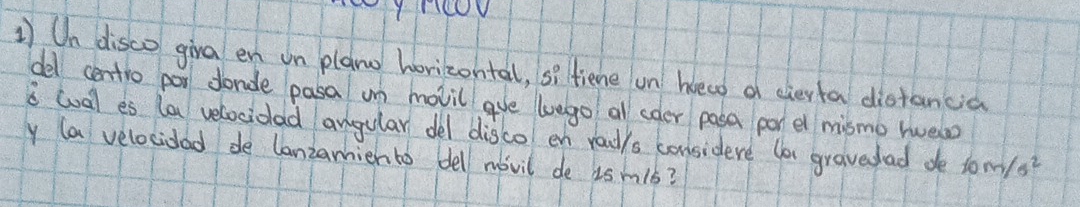 y MCOV
1) Un disco gira en un plano horizontal, si tiene un hueco a cierta distancia
del centro por donde pasa un móvil que luego al caer pasa por el mismo hueco
¿ Cual es la velocidad angular del disco en rad/s considere la gravedad de 10m/s²
y la velocidad de lanzamiento del móvil de 15 m/s?